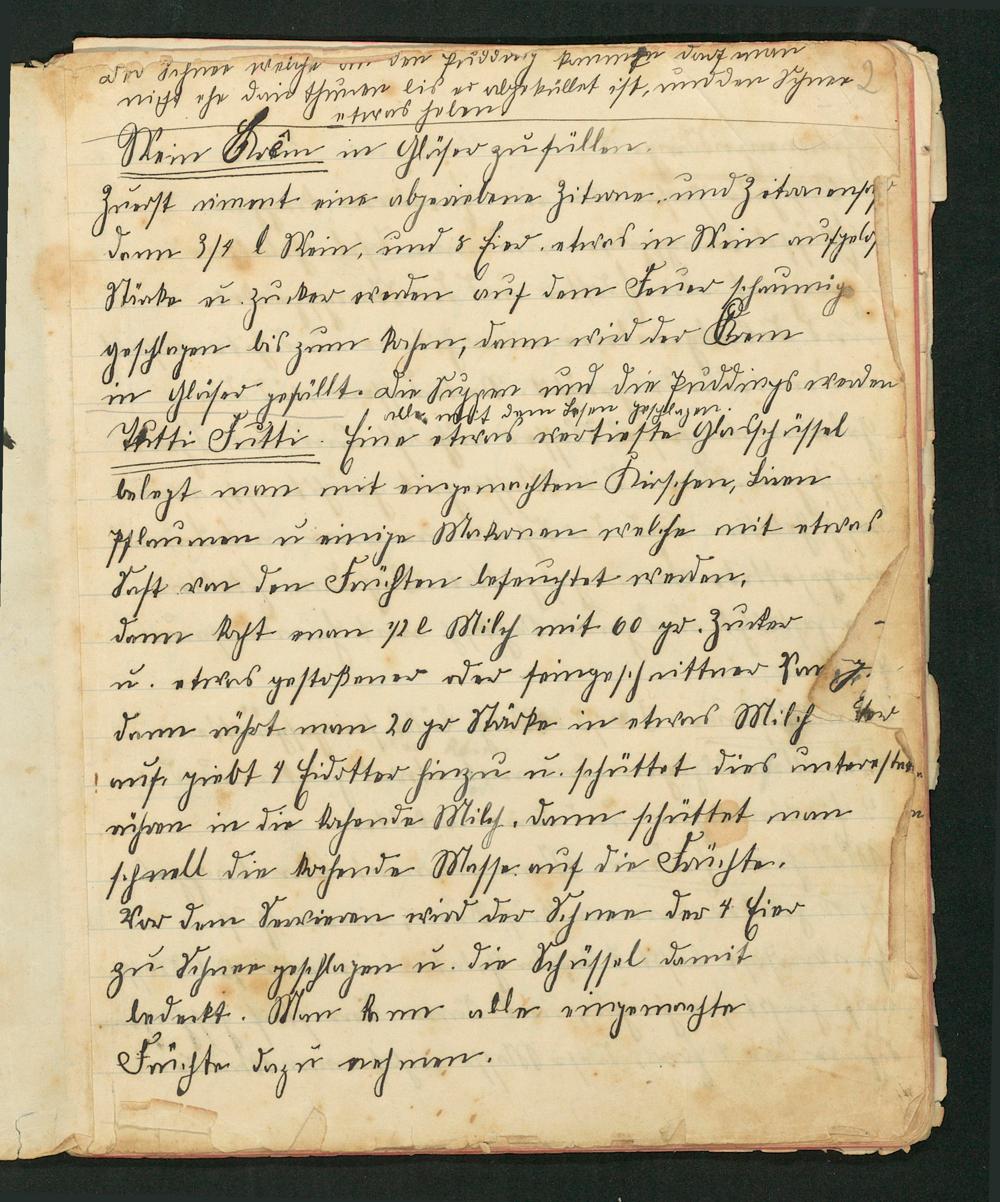 Der Schnee welche an den Pudding kommen darf man
nicht ehe darin thun bis er abgekühlet ist, und den Schnee 2
etwas heben
Wein Krêm in Gläser zu füllen.
Zuerst nimmt eine abgeriebene Zitrone, und Zitronensaft
dann 3/4 l Wein, und 8 Eier. etwas in Wein aufgelös
Stärke u. Zucker werden auf dem Feuer schaumig
geschlagen bis zum kochen, dann wird der Krem
in Gläser gefüllt. Die Suppen und die Puddings werden
alle mit dem Besen geschlagen.
Tutti Futti. Eine etwas vertiefte Glasschüssel
belegt man mit eingemachten Kirschen, Biren
Pflaumen u einige Makronen welche mit etwas
Saft von den Früchten befeuchtet werden,
dann kocht man 1/2 l Milch mit 60 gr. Zucker
u. etwas gestoßener oder feingeschnittner
dann rührt man 20 gr Stärke in etwas Milch
auf, giebt 4 Eidotter hinzu u. schüttet dies unter
rühren in die kochende Milch, dann schüttet man
schnell die kochende Masse auf die Früchte.
Vor dem Servieren wird der Schnee der 4 Eier
zu Schnee geschlagen u. die Schüssel damit
bedeckt. Man kann alle eingemachte
Früchte dazu nehmen.